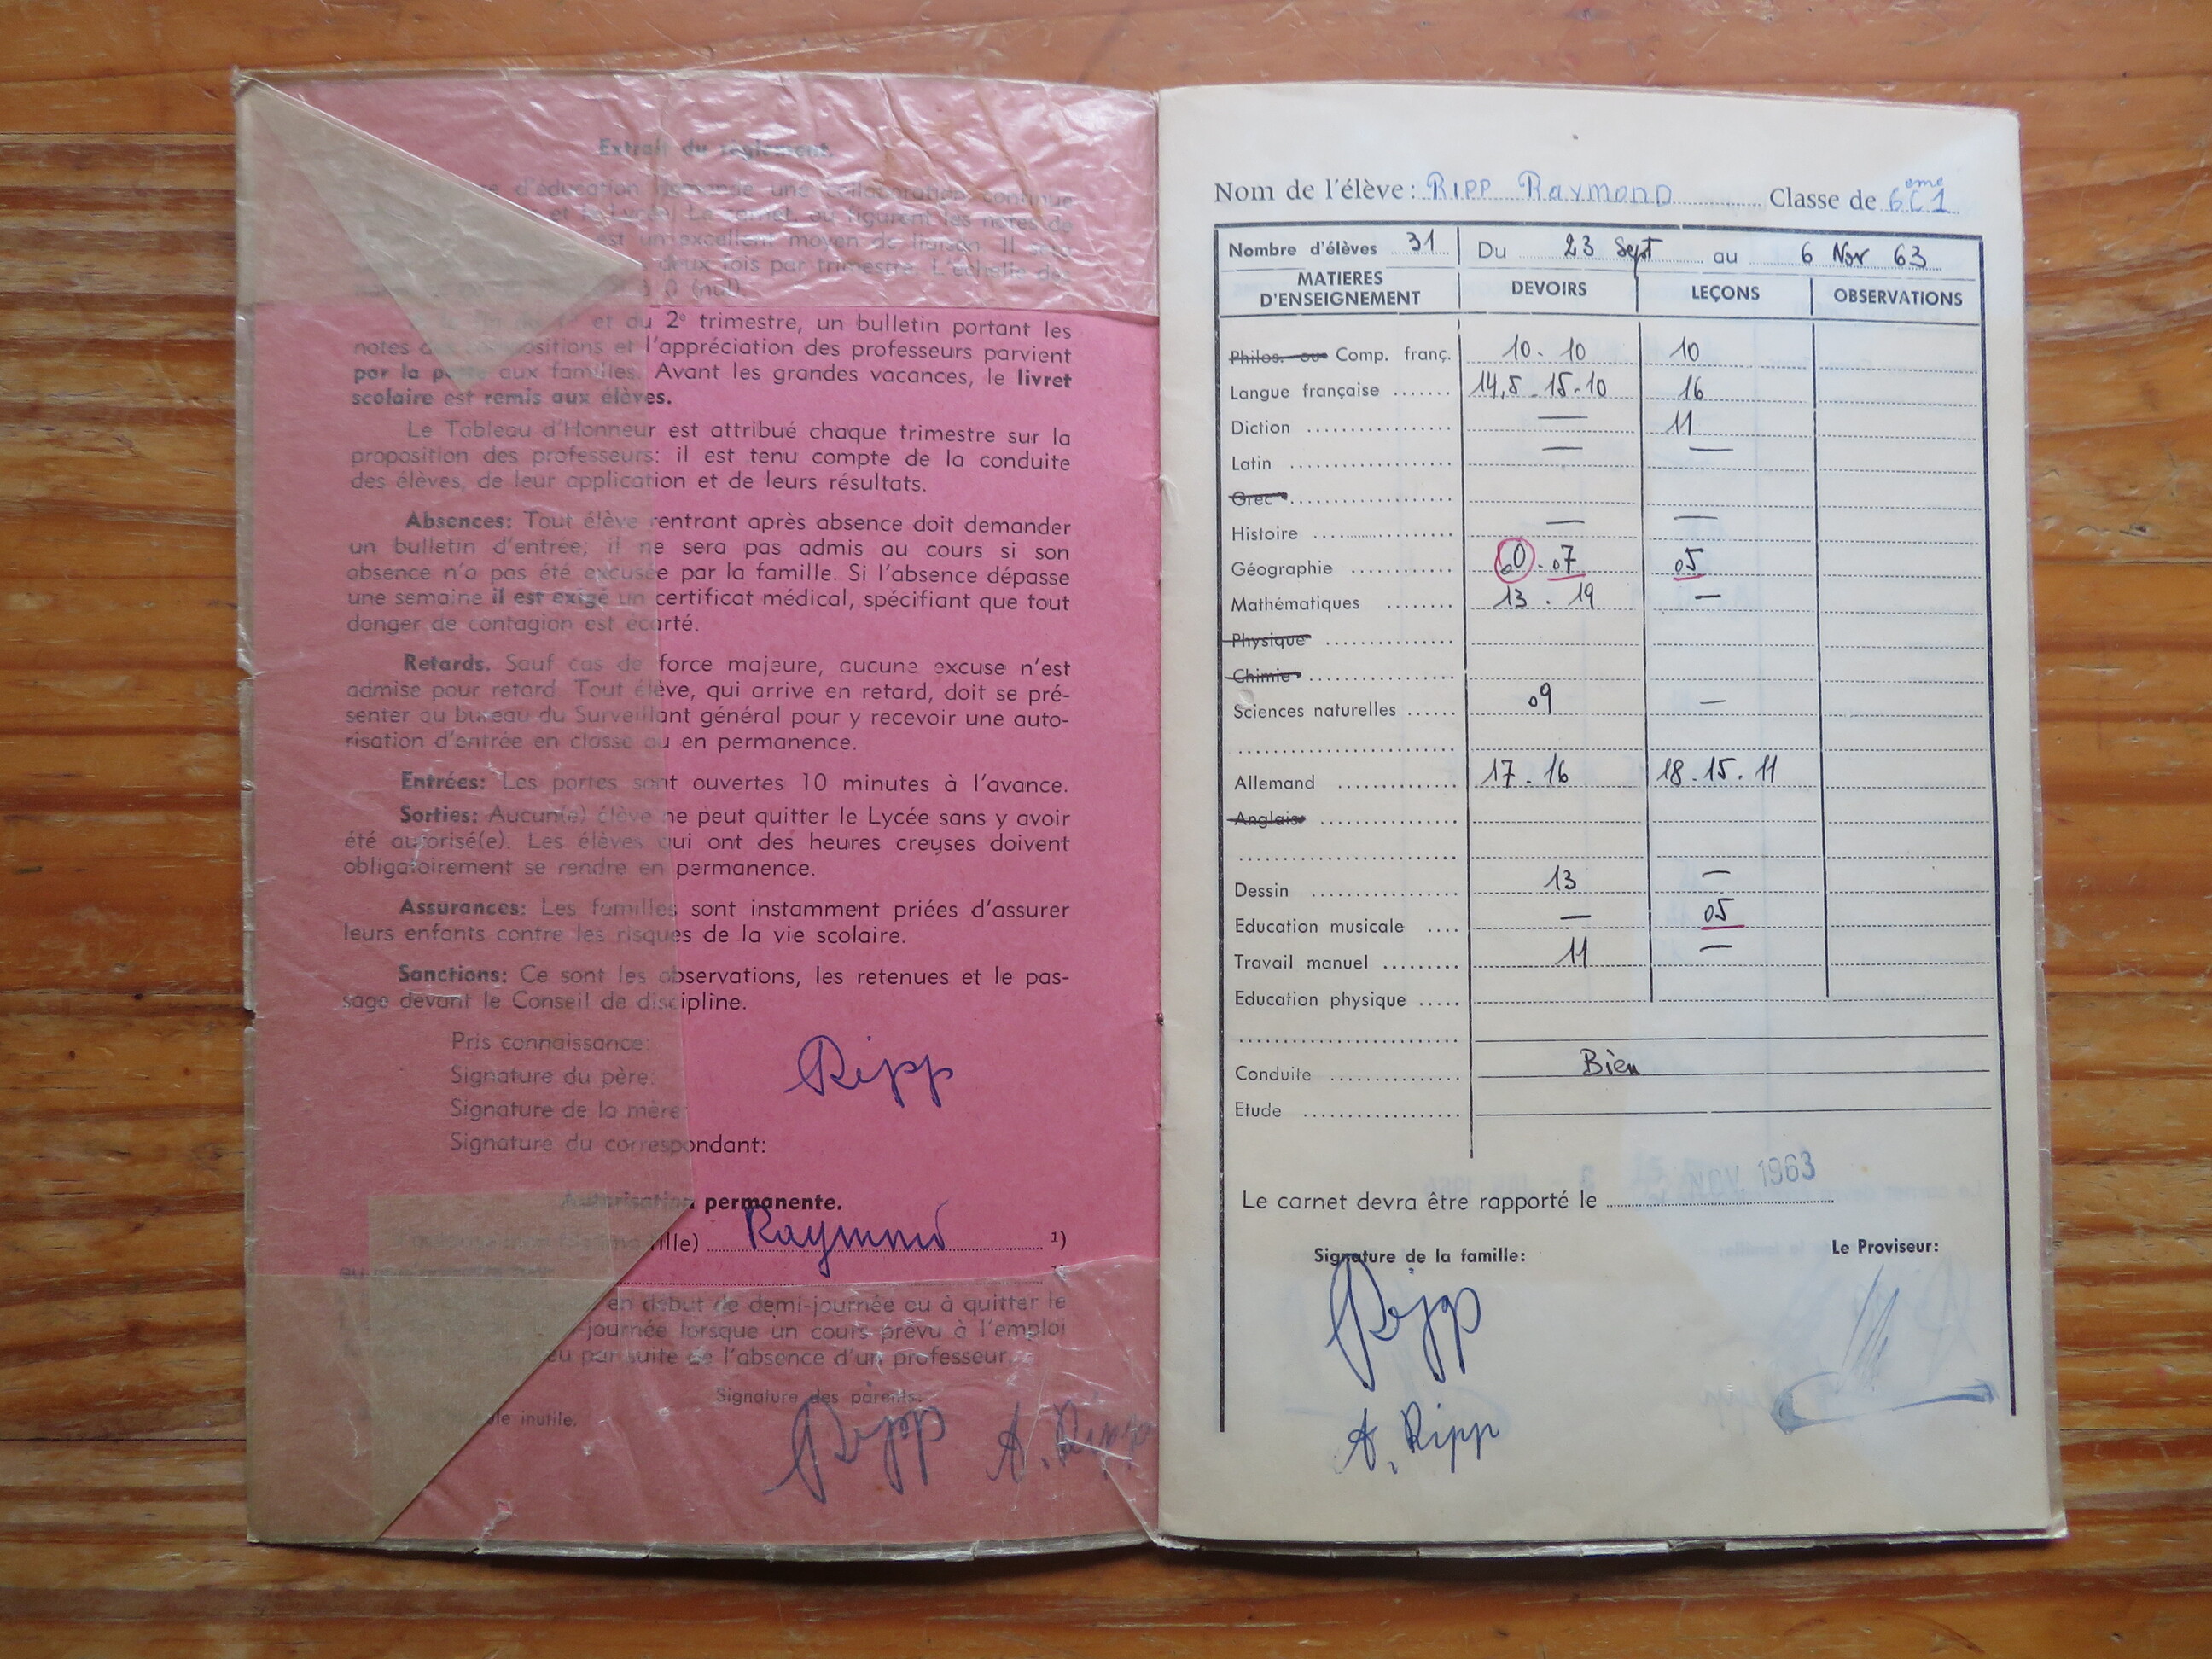 Extrait du règlement.
d'éducation demande une collaboration continue
et le Lycée. Le carnet, où figurent les notes de
est un excellent moyen de liaison. Il sera
deux fois par trimestre. L'échelle des
à 0 (nul).
et du 2e trimestre, un bulletin portant les
notes des compositions et l'appréciation des professeurs parvient
par la poste aux familles. Avant les grandes vacances, le livret
scolaire est remis aux élèves.
Le Tableau d'Honneur est attribué chaque trimestre sur la
proposition des professeurs: il est tenu compte de la conduite
des élèves, de leur application et de leurs résultats.
Absences: Tout élève rentrant après absence doit demander
un bulletin d'entrée; il ne sera pas admis au cours si son
absence n'a pas été excusée par la famille. Si l'absence dépasse
une semaine il est exigé un certificat médical, spécifiant que tout
danger de contagion est écarté.
Retards. Sauf cas de force majeure, aucune excuse n'est
admise pour retard. Tout élève, qui arrive en retard, doit se pré-
senter au bureau du Surveillant général pour y recevoir une auto-
risation d'entrée en classe ou en permanence.
Entrées: Les portes sont ouvertes 10 minutes à l'avance.
Sorties: Aucun(e) élève ne peut quitter le Lycée sans y avoir
été autorisé(e). Les élèves qui ont des heures creuses doivent
obligatoirement se rendre en permanence.
Assurances: Les familles sont instamment priées d'assurer
leurs enfants contre les risques de la vie scolaire.
Sanctions: Ce sont les observations, les retenues et le pas-
sage devant le Conseil de discipline.
Pris connaissance:
Signature du père: Ripp
Signature de la mère:
Signature du correspondant:
Autorisation permanente.
fille) Raymond 1)
en début de demi-journée ou à quitter le
-journée lorsque un cours prévu à l'emploi
par suite de l'absence d'un professeur.
Signature des parents.
inutile.
Ripp A. Ripp
Nom de l'élève: RIPP RAYMOND Classe de 6eme C1
Nombre d'élèves 31 Du 23 Sept au 6 Nov 63
MATIERES D'ENSEIGNEMENT DEVOIRS LEÇONS OBSERVATIONS
Philos. ou Comp. franç. 10 - 10 10
Langue française 14,5 - 15 - 10 16
Diction — 11
Latin — —
Grec
Histoire — —
Géographie 00 - 07 05
Mathématiques 13 - 19 —
Physique
Chimie
Sciences naturelles 09 —
Allemand 17 - 16 18 - 15 - 11
Anglais
Dessin 13 —
Education musicale — 05
Travail manuel 11 —
Education physique
Conduite Bien
Etude
Le carnet devra être rapporté le NOV. 1963
Signature de la famille: Le Proviseur:
Ripp
A. Ripp